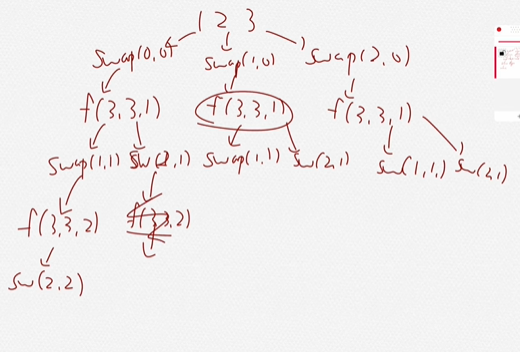 1 2 3
swap(0,0) swap(1,0) swap(2,0)
f(3,3,1) f(3,3,1) f(3,3,1)
swap(1,1) sw(2,1) swap(1,1) sw(2,1) sw(1,1,) sw(2,1)
f(3,3,2) f(3,3,2)
sw(2,2)